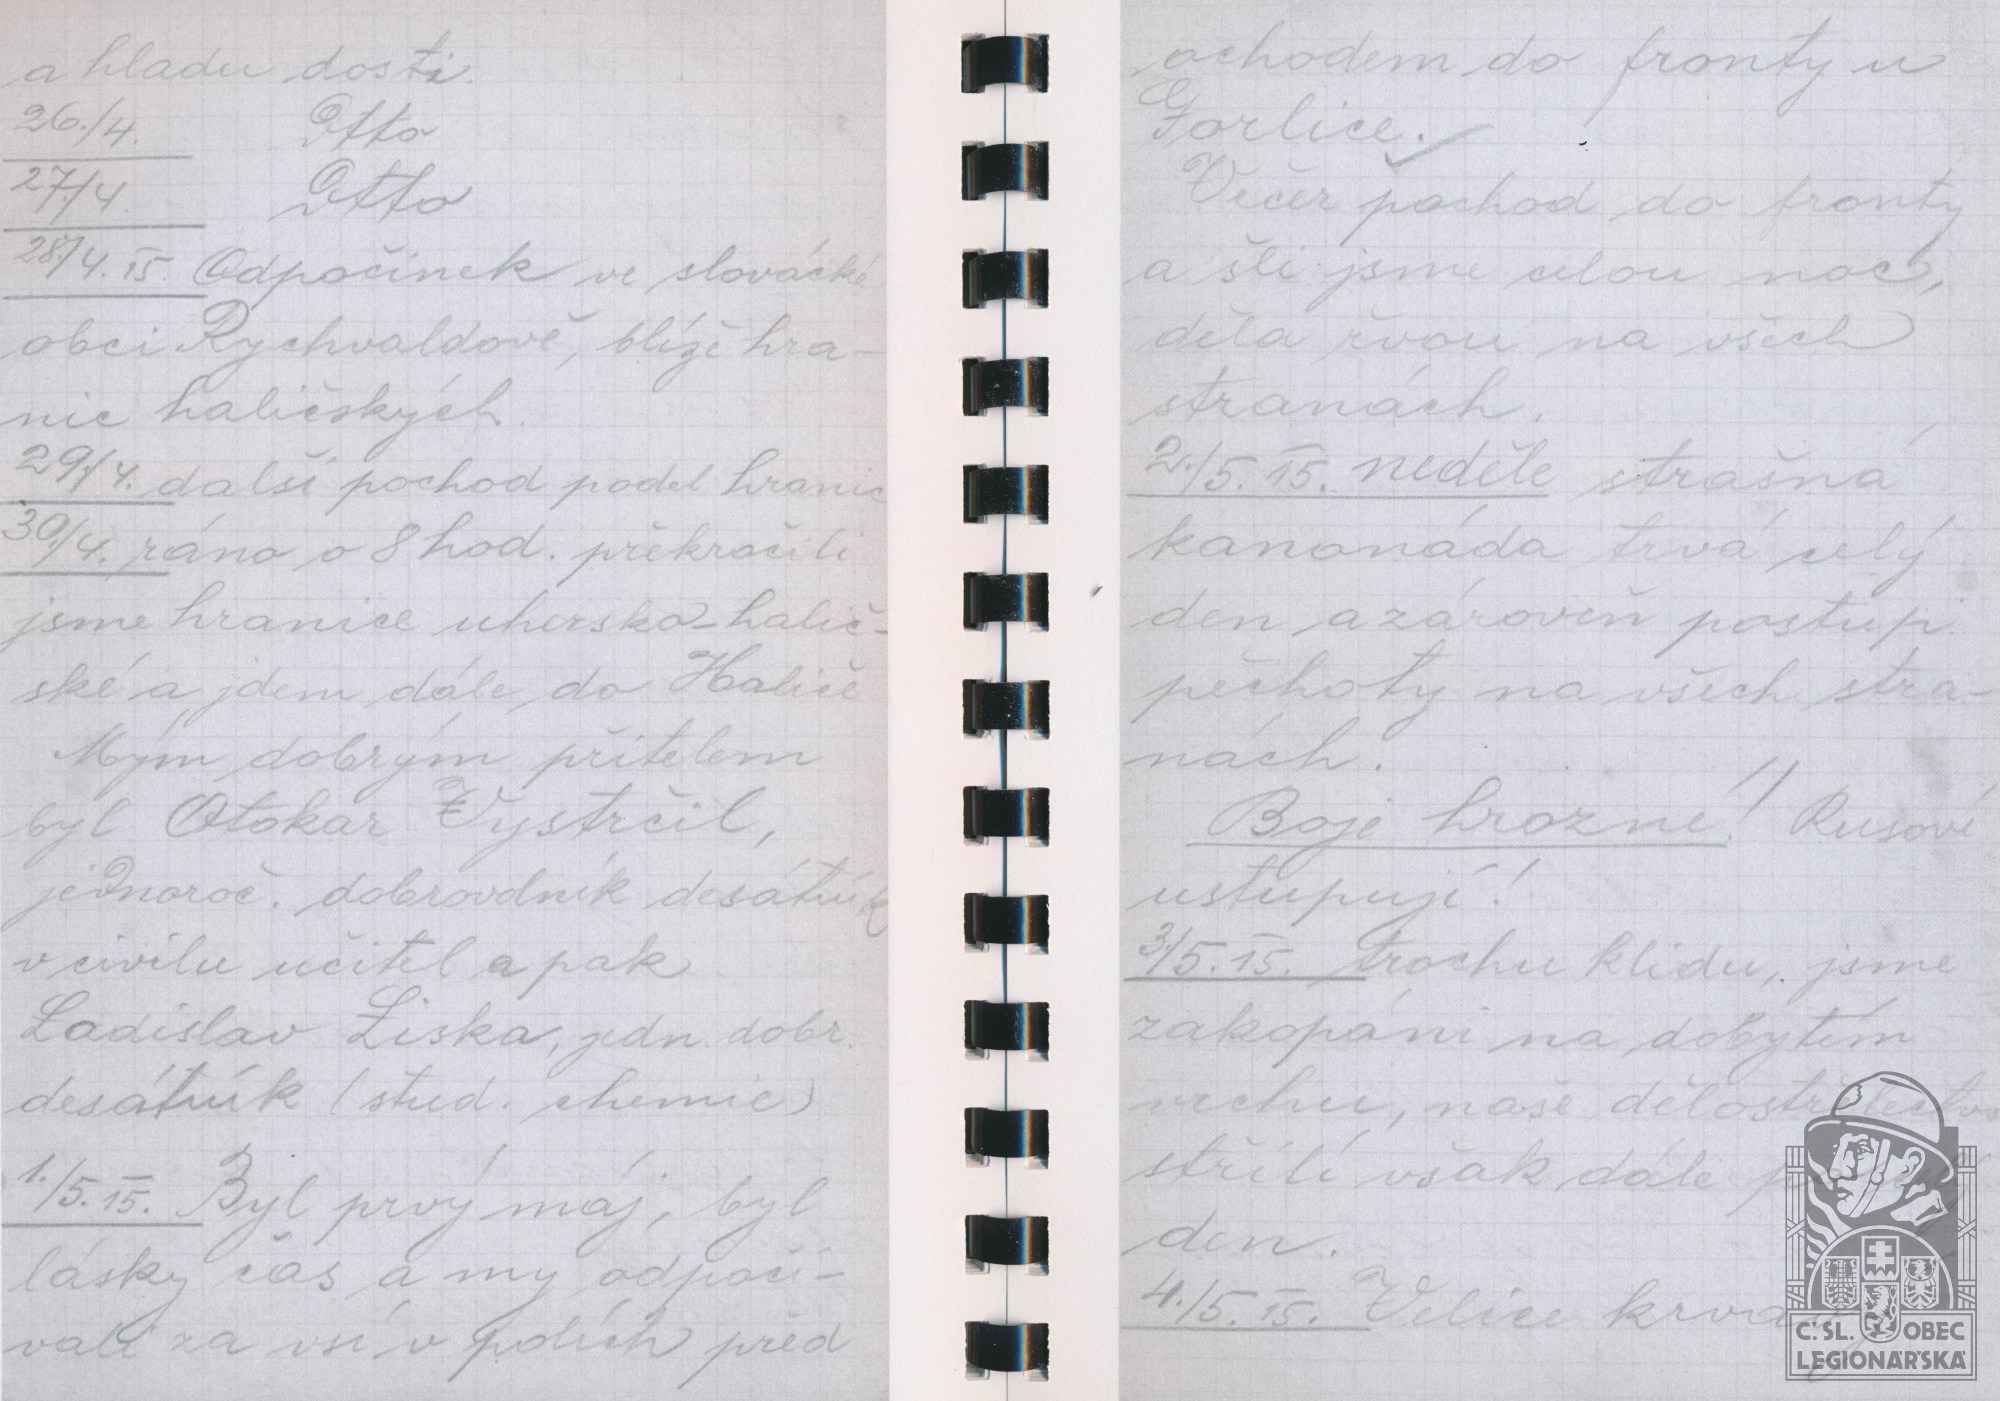 a hladu dosti.
26./4. Otto
27/4. Otto
28/4. 15. Odpočinek ve slovácké
obci Rychvaldově, blíže hra-
nic haličských.
29/4. další pochod podel hranic
30/4. ráno o 8 hod. překročili
jsme hranice uhersko-halič-
ské a jdem dále do Haliče
Mým dobrým přítelem
byl Otokar Vystrčil,
jednoroč. dobrovdník desátník
v civilu učitel a pak
Ladislav Liska, jedn. dobr.
desátník (stud. chemie)
1./5. 15. Byl prvý máj, byl
lásky čas a my odpočí-
vali za vsí v polích před
ochodem do fronty u
Gorlice.
Večer pochod do fronty
a šli jsme celou noc,
děla řvou na všech
stranách.
2./5. 15. neděle strašná
kanonáda trvá celý
den a zároveň postup
pěchoty na všech stra-
nách.
Boje hrozné! Rusové
ustupují!
3./5. 15. trochu klidu, jsme
zakopáni na dobytém
vrchu, naše dělostřelectvo
střílí však dále
den.
4./5. 15. Velice
Č. SL. OBEC
LEGIONÁŘSKÁ